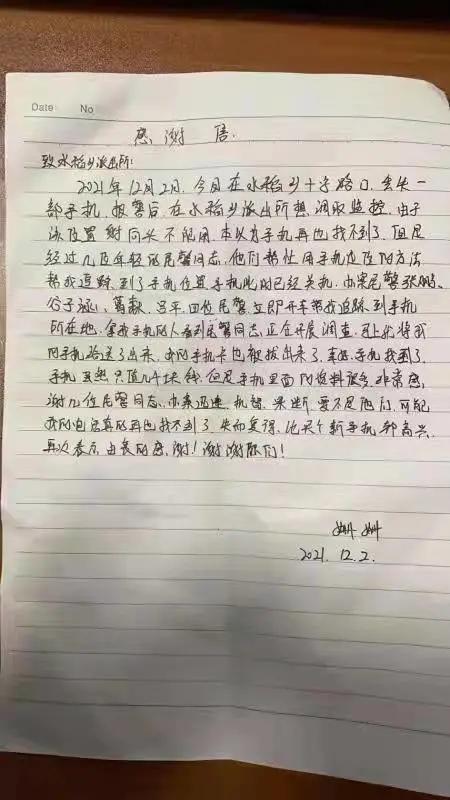 Date No
感谢信.
致水稻乡派出所:
2021年12月2日,今日在水稻乡十字路口,丢失一
部手机,报警后,在水稻乡派出所想调取监控,由于
该位置摄向头不能用,本以为手机再也找不到了,但是
经过几位年轻的民警同志,他们帮忙用手机定位的方法
帮我追踪到了手机位置,手机此时已经关机,办案民警张鹏、
谷子涵、葛淼、吕平四位民警立即开车帮我追踪到手机
所在地,拿我手机的人看到民警同志正在开展调查,马上就将我
的手机给送了出来,我的手机卡也都拔出来了,幸好手机找到了,
手机虽然只值几千块钱,但是手机里面的资料很多,非常感
谢几位民警同志,办案迅速、机智、果断,要不是他们,可能
我的电话真的再也找不到了,失而复得,比买个新手机都高兴,
再次表示由衷的感谢!谢谢你们!
姗姗
2021. 12. 2.